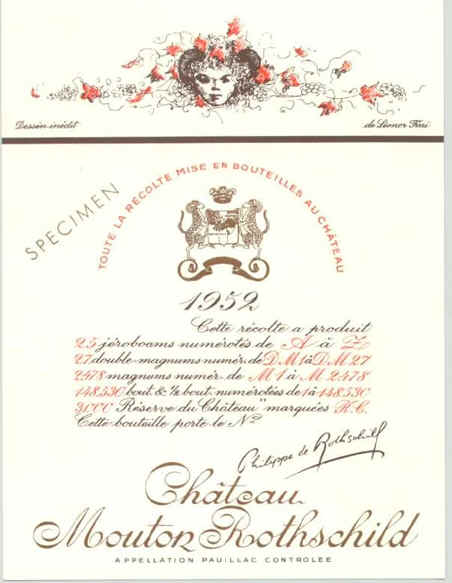 Dessin inédit de Léonor Fini
SPECIMEN
TOUTE LA RÉCOLTE MISE EN BOUTEILLES AU CHÂTEAU
1952
Cette récolte a produit
25 jéroboams numérotés de A à ZZ
27 double-magnums numér. de D.M 1 à D.M 27
2478 magnums numér. de M 1 à M 2478
148.530 bout. & ½ bout. numérotées de 1 à 148.530
3000 "Réserve du Château" marquées R.C.
Cette bouteille porte le Nº
Philippe de Rothschild
Château
Mouton Rothschild
APPELLATION PAUILLAC CONTROLÉE